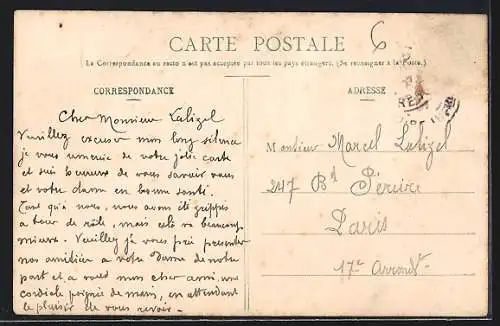 CARTE POSTALE
6
La Correspondance au recto n'est pas acceptée par tous les pays étrangers. (Se renseigner à la Poste.)
CORRESPONDANCE
ADRESSE
Cher Monsieur Lalizel
Veuillez excuser mon long silence
je vous remercie de votre jolie carte
et suis heureux de vous savoir vous
et votre dame en bonne santé.
Tant qu'à nous, nous avons été grippés
à tour de rôle, mais cela va beaucoup
mieux. Veuillez je vous prie presenter
nos amitiés à votre Dame de notre
part et à vous mon cher ami, une
cordiale poignée de mains, en attendant
le plaisir de vous revoir.
Monsieur Marcel Lalizel
247 Bd Péreire
Paris
17e Arrondt